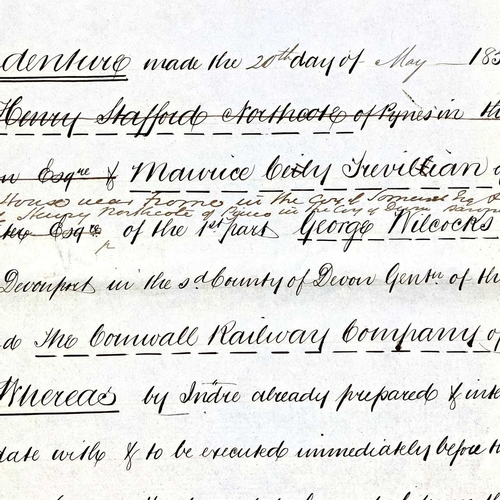 denture made the 20th day of May 185
Henry Stafford Northcote of Pynes in th
n Esqre & Maurice Ceily Trevillian o
House near Frome in the Co of Somerset Esq &
Henry Northcote of Pynes in the Co of Devon
Esqre of the 1st part George Wilcocks
Devonport in the sd County of Devon Gentn of th
d The Cornwall Railway Company of
Whereas by Indre already prepared & inte
date with & to be executed immediately before t